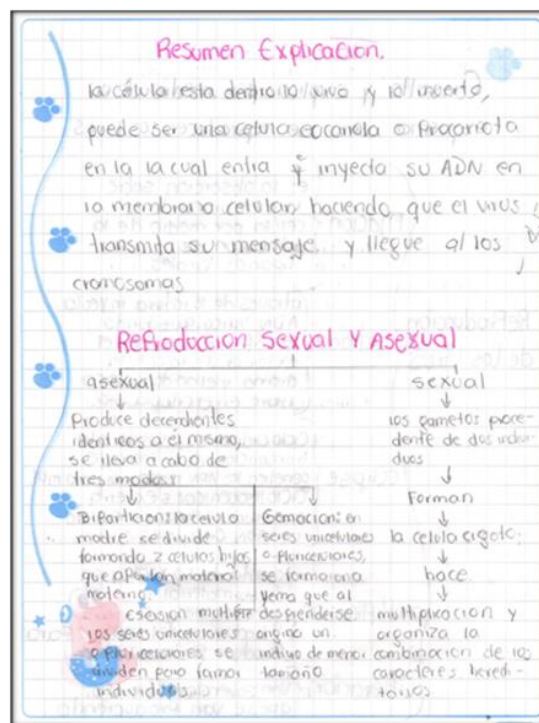 Resumen Explicación.
la célula esta dentro lo vivo y lo inuerto,
puede ser una celula eocariola o Procariota
en la la cual entra y inyecta su ADN en
la membrana celular haciendo que el virus
transmita su mensaje y llegue al los
cromosomas
Reproduccion Sexual Y Asexual
asexual
Produce decendientes
identicos a él mismo,
se lleva a cabo de
tres modos:
Biparticion: la celula
madre se divide
formando 2 celulas hijas
que aportan material
materno.
esision multiple
los seres unicelulares
o pluricelulares se
dividen para formar
individuos.
Gemacion: en
seres unicelulares
o Pluricelulares,
se forma una
yema que al
desprenderse
origina un
indivuo de menor
tamaño
sexual
los gametos proce-
dente de dos indivi-
duos
Forman
la celula cigoto.
hace
multiplicacion y
organiza la
combinacion de los
caracteres heredi-
tarios.